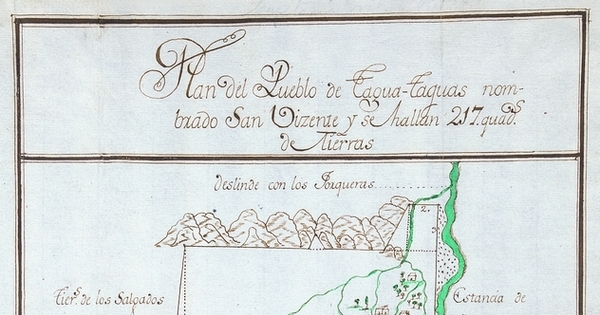 Plan del Pueblo de Tagua-Taguas nom-
brado San Vizente y se hallan 217. quads
de Tierras
deslinde con los Jorqueras
2.
Tiers. de los Salgados
Estancia de